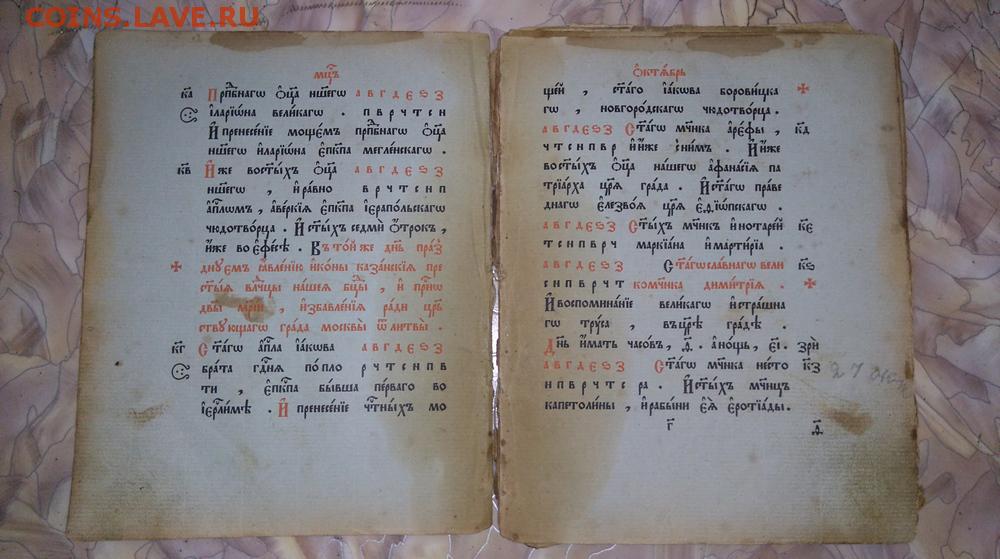 COINS.LAVE.RU
мцⷭ҇ъ
к҃а Прпⷣбнагѡ ѻ҆ц҃а нш҃егѡ а в г д є ѕ з
и҆ларїѡна великагѡ . п в р ч т с н
И҆ пренесе́нїе моще́мъ прпⷣбнагѡ ѻ҆ц҃а
нш҃егѡ и҆ларїѡна є҆пⷭ҇кпа мегле́нскагѡ .
к҃в И҆же востⷭ҇ыхъ ѻ҆ц҃а а в г д є ѕ з
нш҃егѡ , и҆ равно в р ч т с н п
а҆пⷭ҇лѡмъ , а҆ве́ркїѧ є҆пⷭ҇кпа і҆ерапо́льскагѡ
чюдотво́рца . И҆ стⷭ҇ы́хъ седмѝ ѻ҆́трокъ ,
и҆́же во є҆фе́сѣ . Въ то́й же дн҃ь пра́з
днуемъ ꙗ҆вле́нїю и҆ко́ны каза́нскїѧ пре
ст҃ы́ѧ влⷣчцы на́шеѧ бц҃ы , и҆ прⷭ҇нѡ
дв҃ы мр҃і́и , и҆збавле́нїѧ ра́ди црⷭ҇
ству́ющагѡ гра́да москвы̀ ѿ литвы̀ .
к҃г Ст҃а́гѡ а҆пⷭ҇ла і҆а́кѡва а в г д є ѕ з
бра́та гдⷭ҇нѧ по пло р ч т с н п в
ти , є҆пⷭ҇кпа бы́вша пе́рваго во
і҆ерⷭ҇ли́мѣ . И҆ пренесе́нїе чⷭ҇тны́хъ мо
ѻ҆ктѧ́брь
ще́й , ст҃а́го і҆а́кѡва борови́цка
гѡ , новгоро́дскагѡ чюдотво́рца .
а в г д є ѕ з Ст҃а́гѡ мⷱ҇нка а҆ре́ѳы , к҃д
ч т с н п в р и҆ и҆̀же сни́мъ . И҆ и҆́же
во ст҃ы́хъ ѻ҆ц҃а на́шегѡ а҆ѳана́сїѧ па
трїа́рха цр҃ѧ̀ гра́да . И҆ ст҃а́гѡ пра́ве
днагѡ є҆лезво́ѧ цр҃ѧ̀ є҆ѳїо́пскагѡ .
а в г д є ѕ з Ст҃ы́хъ мⷱ҇нкъ и҆ нотаре́й к҃е
т с н п в р ч маркїа́на и҆ марти́рїа .
а в г д є ѕ з Ст҃а́гѡ сла́внагѡ вели к҃ѕ
с н п в р ч т комⷱ҇нка дими́трїѧ .
И҆ воспомина́нїе вели́кагѡ и҆ стра́шна
гѡ тру́са , въ цр҃ѣ гра́дѣ .
Дн҃ь и҆́мать часо́въ , а҃і . а но́щь , г҃і . зри
а в г д є ѕ з Ст҃а́гѡ мⷱ҇нка не́сто к҃з
н п в р ч т с ра . И҆ ст҃ы́хъ мⷱ҇нцъ
капетоли́ны , и҆ рабы́ни є҆ѧ̀ є҆роті̑а́ды .
г҃